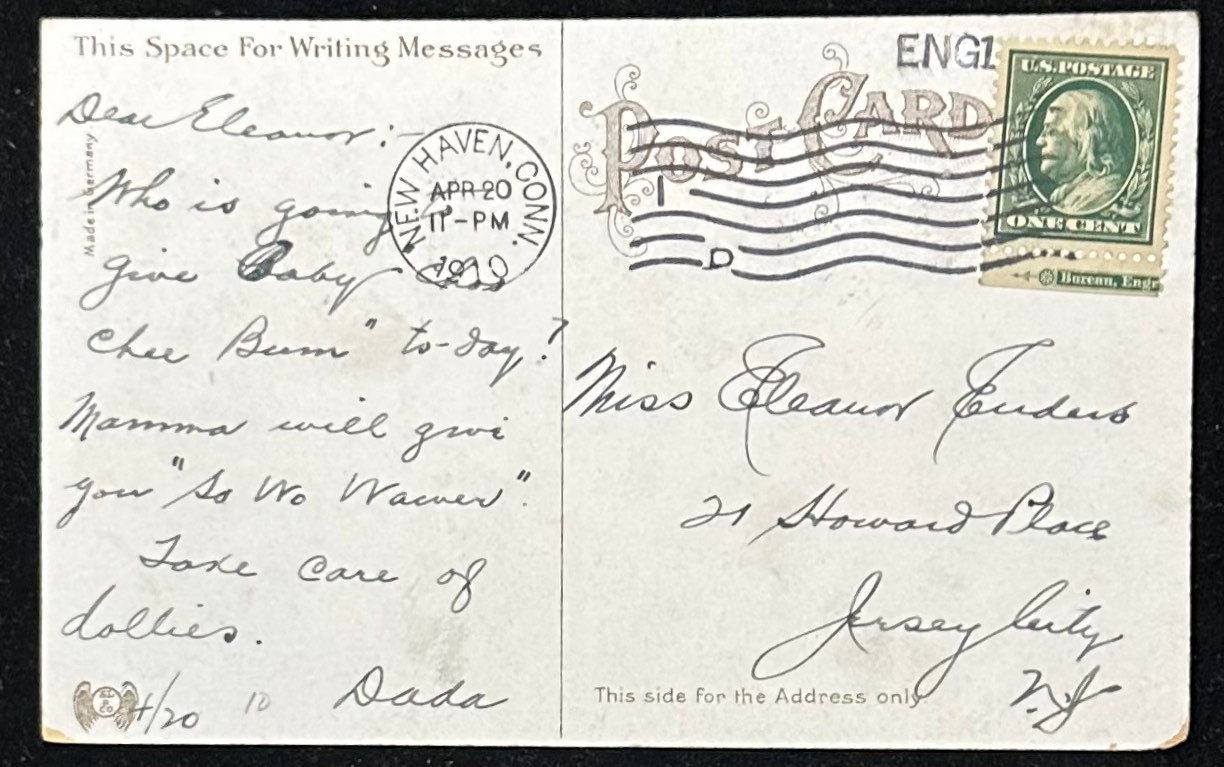 This Space For Writing Messages
Dear Eleanor:-
Who is going
give Baby
chee Bum" to-day?
Mamma will give
you "So Wo Wawer".
Take care of
dollies.
Dada
4/20 10
Made in Germany
NEW HAVEN, CONN.
APR 20
11-PM
1910
POST CARD
ENG1
1
D
U.S. POSTAGE
ONE CENT
Bureau, Engr
Miss Eleanor Enders
21 Howard Place
Jersey City
N.J
This side for the Address only.